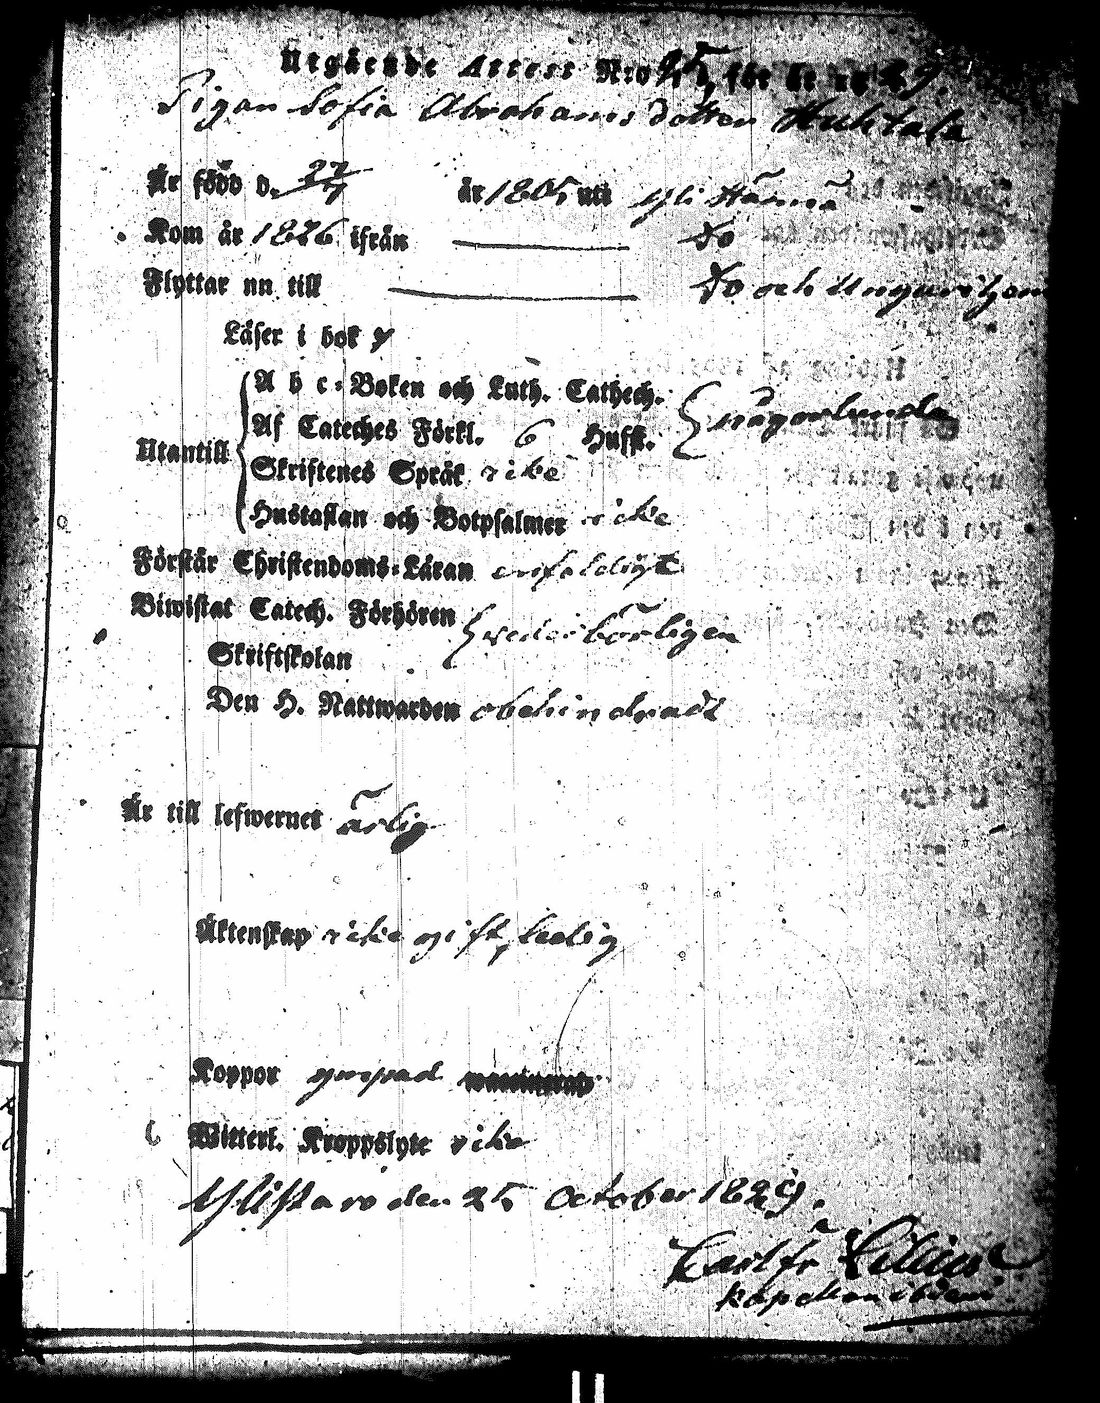 Utgående Attest N:o 25, för år 1829.
Pigan Sofia Abrahamsdotter Huhtala
Är född d. 27/7 år 1805 uti Yli Härmä
Kom år 1826 ifrån — Do
Flyttar nu till — Do och
Läser i bok
Utantill
A b c-Boken och Luth. Cathech.
Af Cateches Förkl. 6 Hufst. någorlunda
Skriftenes Språk icke
Hustaflan och Botpsalmer icke
Förstår Christendoms-Läran enfaldigt
Biwistat Catech. Förhören wederbörligen
Skriftskolan
Den H. Nattwarden obehindradt
Är till lefwernet ärlig
Äktenskap icke gift, ledig
Koppor ympad
Witterl. Kroppslyte icke
Ylistaro den 25 October 1829.
Carl Fr